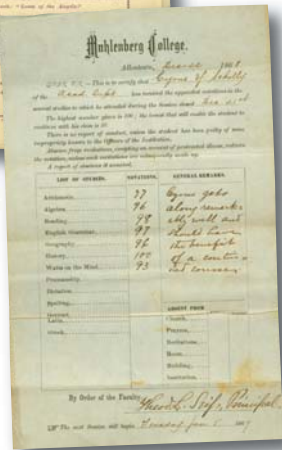 Muhlenberg College.
Allentown,
This is to certify that Cyrus J
of the Acad. Dept. has received the appended notations in the
several studies to which he attended during the Session closed
The highest number given is 100; the lowest that will enable the student to
continue with his class is
There is no report of conduct, unless the student has been guilty of some
impropriety known to the Officers of the Institution.
Absence from recitations, excepting on account of protracted illness, reduces
the notation, unless such recitations are subsequently made up.
A report of absences is annexed.
LIST OF STUDIES. NOTATIONS. GENERAL REMARKS.
Arithmetic, 77 Cyrus gets
Algebra, 96 along remark-
Reading, 98 ably well and
English Grammar, 97 should have
Geography, 96 the benefit
History, 100 of a contin-
Watts on the Mind, 93 ued course
Penmanship,
Dictation,
Spelling,
German,
Latin,
Greek,
ABSENT FROM
Church,
Prayers,
Recitations,
Room,
Building,
Institution,
By Order of the Faculty,
Principal
The next Session will begin Tuesday Jan